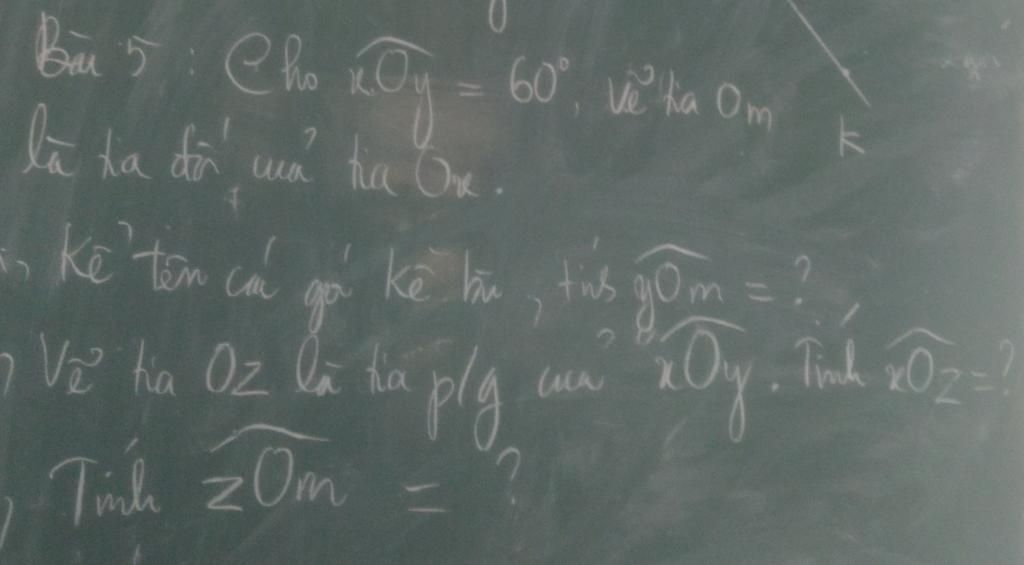 Bài 5 : Cho xOy = 60°, vẽ tia Om
k
là tia đối của tia Ox.
Kể tên các góc kề bù, tính yOm = ?
Vẽ tia Oz là tia p/g của xOy. Tính xOz = ?
Tính zOm = ?